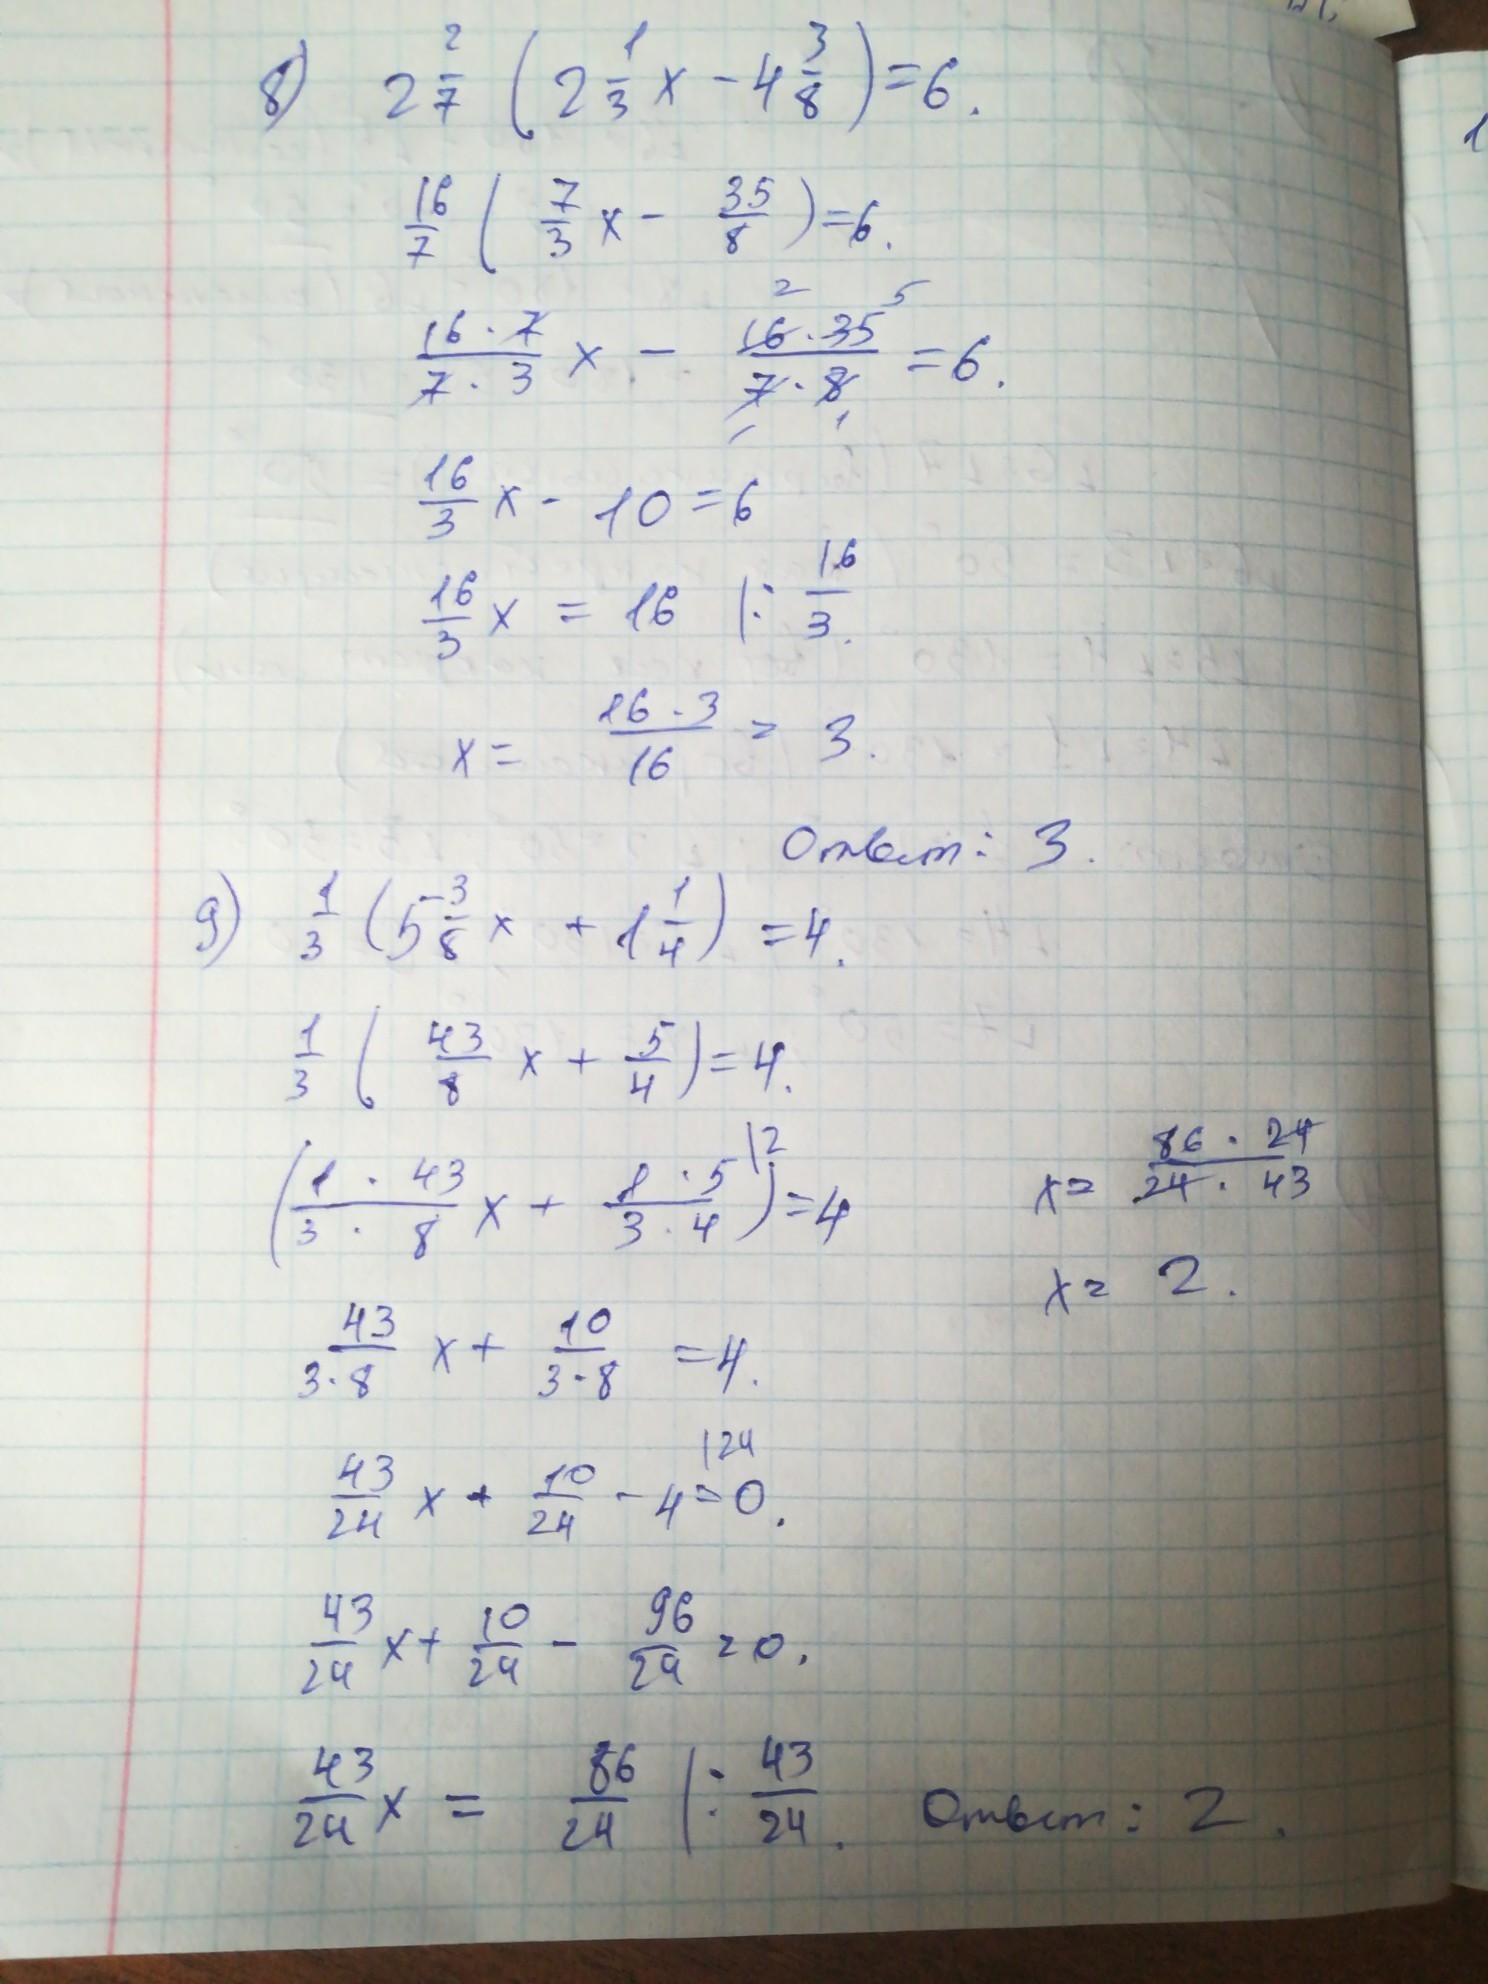 8) 2 2/7 (2 1/3 x - 4 3/8) = 6.
16/7 (7/3 x - 35/8) = 6.
2 5
16·7/7·3 x - 16·35/7·8 = 6.
1 1
16/3 x - 10 = 6
16/3 x = 16 | : 16/3.
x = 16·3/16 = 3.
Ответ: 3.
9) 1/3 (5 3/8 x + 1 1/4) = 4.
1/3 (43/8 x + 5/4) = 4.
(1·43/3·8 x + 1·5/3·4 |2) = 4
43/3·8 x + 10/3·8 = 4.
43/24 x + 10/24 - 4 |24 = 0.
43/24 x + 10/24 - 96/24 = 0.
43/24 x = 86/24 | : 43/24.
x = 86·24/24·43
x = 2.
Ответ: 2.